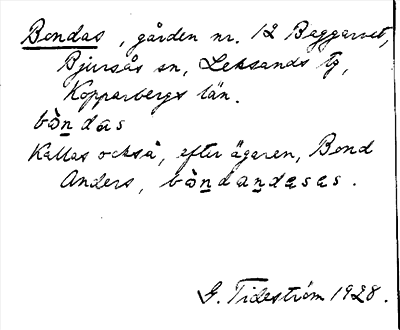 Bondas, gården nr. 12 Baggarvet,
Bjursås sn, Leksands tg,
Kopparbergs län.
bò̱ndas
Kallas också, efter ägaren, Bond
Anders, bò̱ndandasas.
G. Tideström 1928.